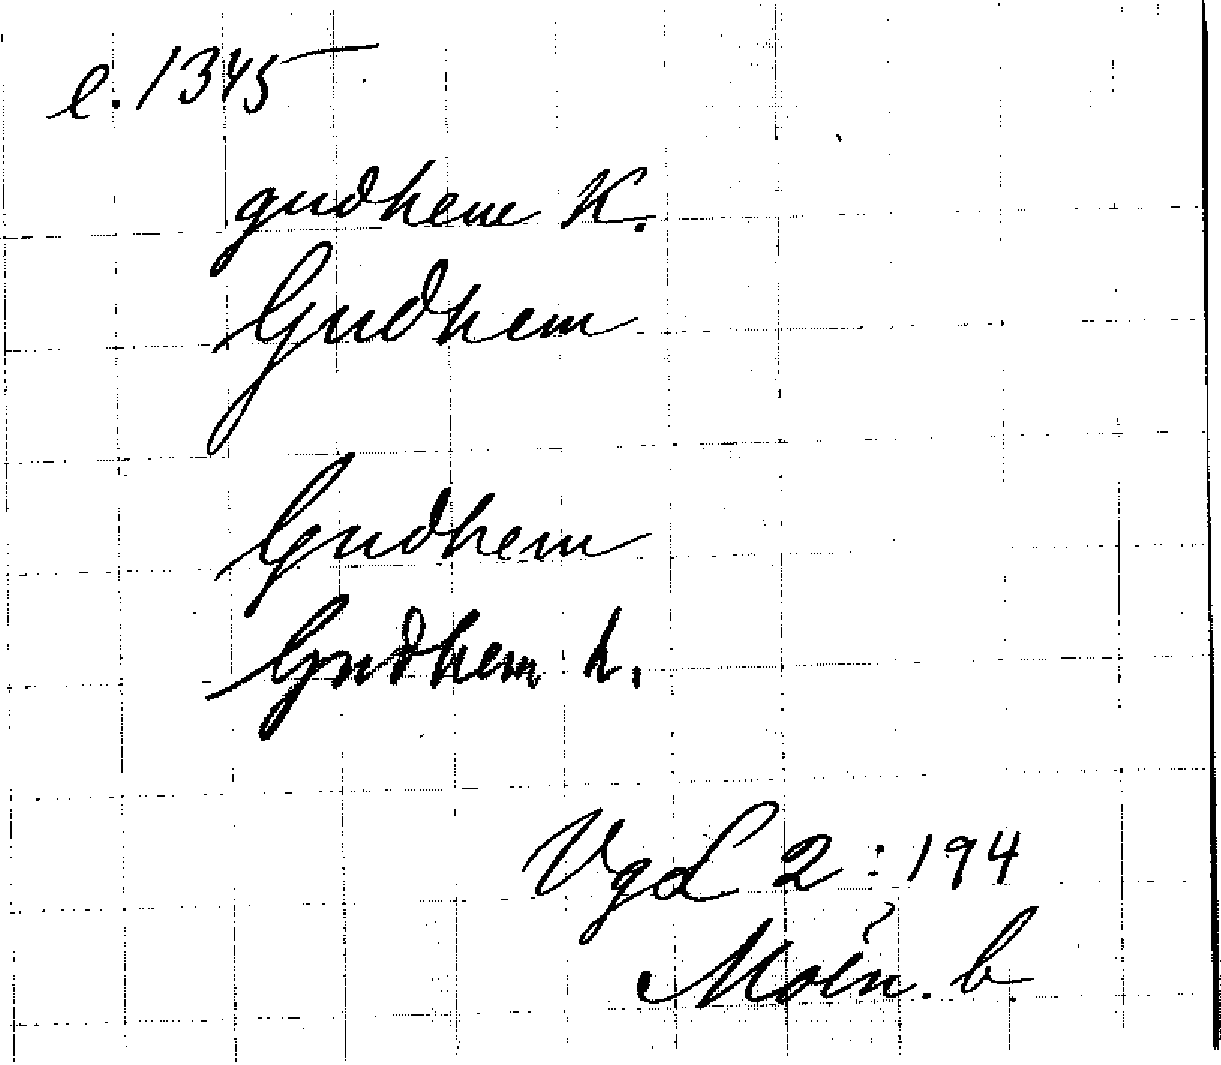 e. 1345
gudhem K.
Gudhem
Gudhem
Gudhem h.
VgdL 2:194
b.